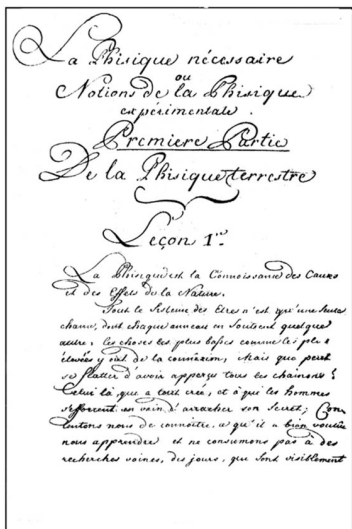 La Phisique nécessaire
ou
Notions de la Phisique
expérimentale.
Premiere Partie
De la Phisique terrestre
Leçon 1re
La Phisique est la Connoissance des Causes
et des Effets de la Nature.
Tout le Sisteme des Etres n'est qu'une seule
chaine, dont chaque anneau en Soutient quelque
autre: les choses les plus basses comme les plus
élevées y ont de la connexion, Mais que peut
se flatter d'avoir apperçu tous les chainons?
Celui là, que a tout créé, et à qui les hommes
s'efforcent en vain d'arracher son Secret; Con
tentons nous de connoitre, ce qu'il a bien voulu
nous apprendre et ne consumons pas à des
recherches vaines, des jours, qui sont visiblement